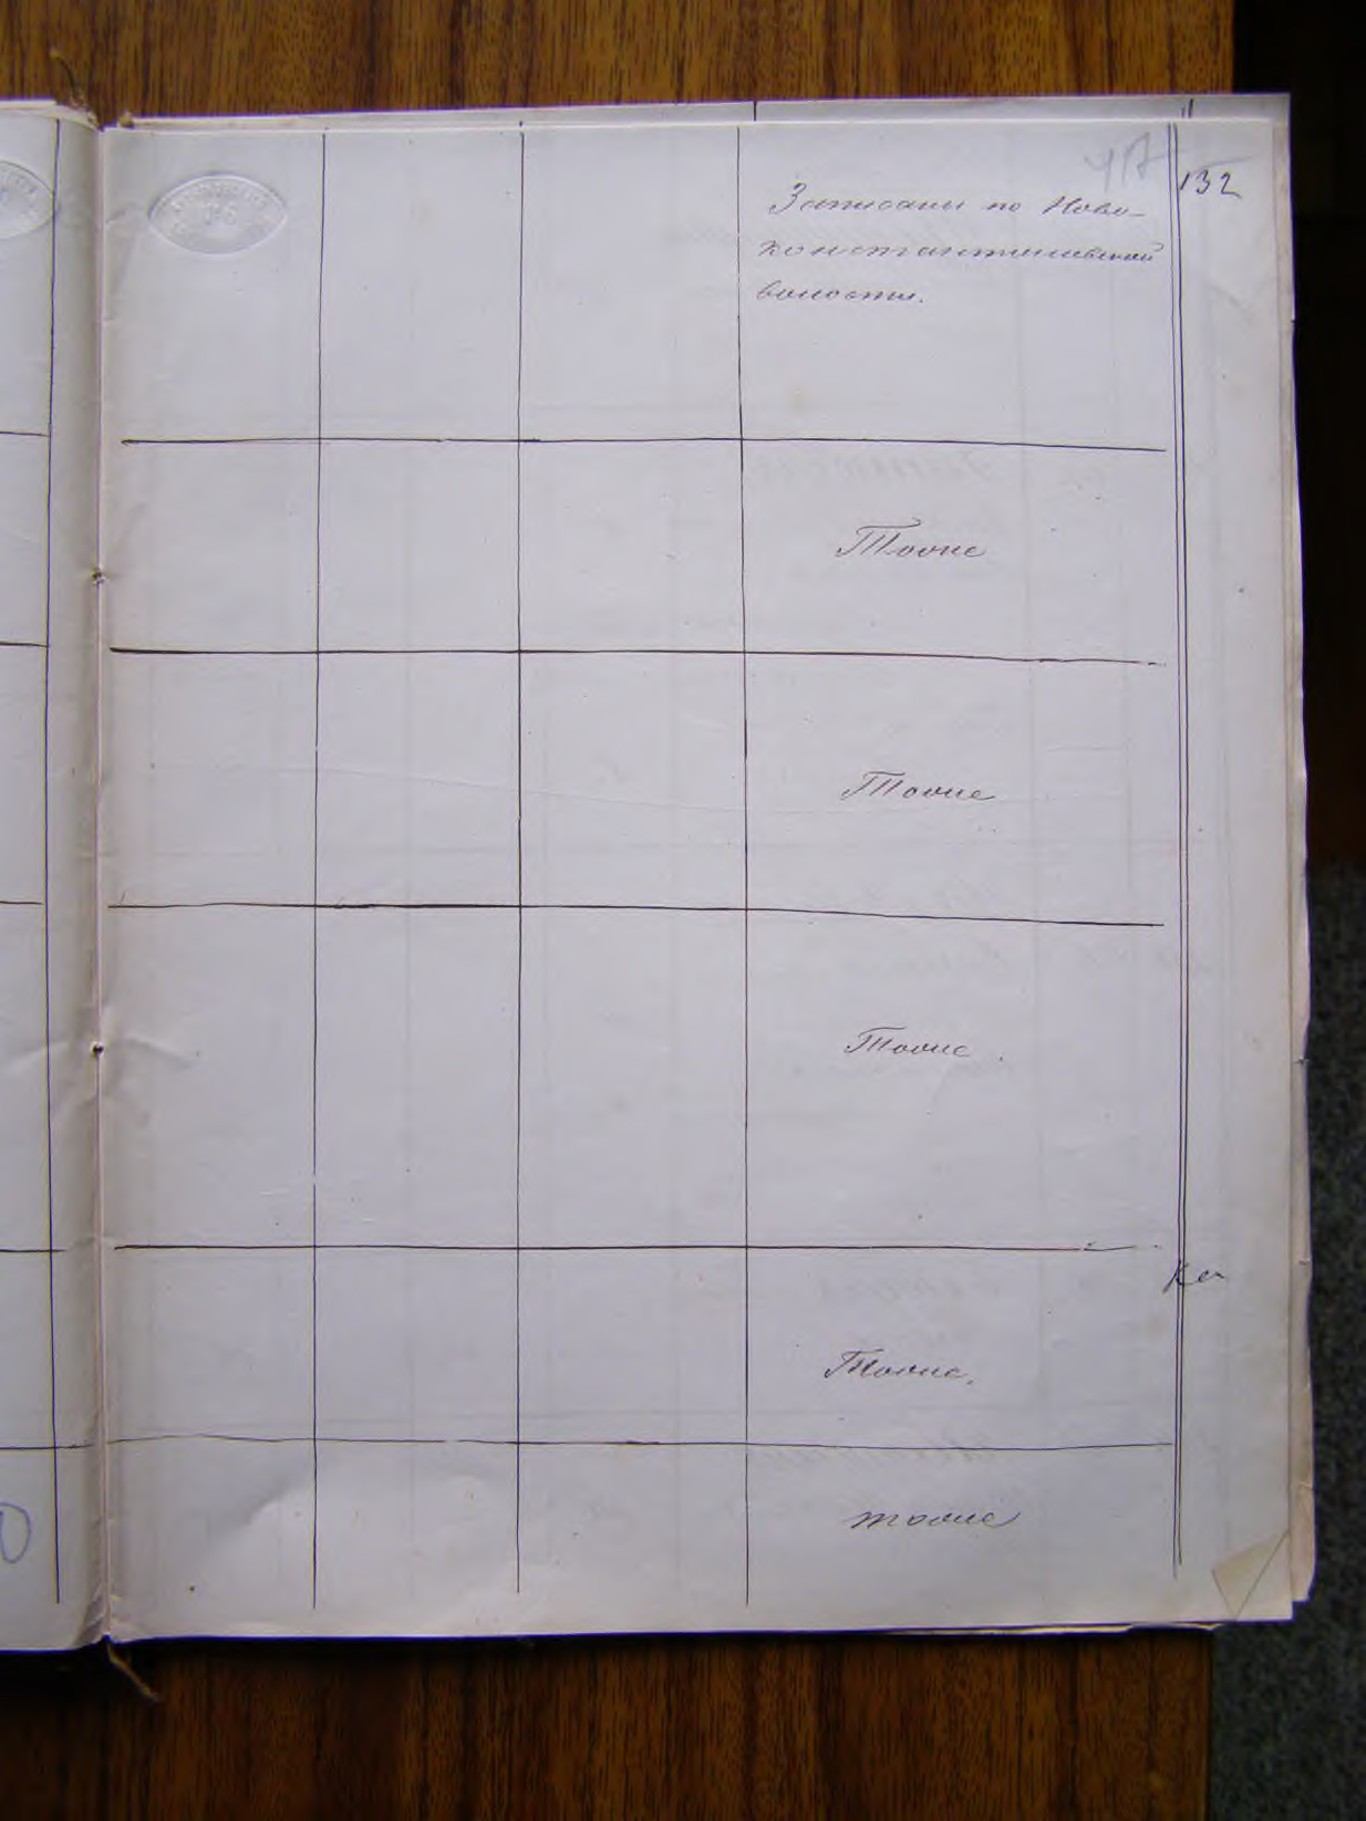 132
Записаны по Ново-
константиновской
волости.
Тоже
Тоже
Тоже.
Ка
Тоже.
тоже